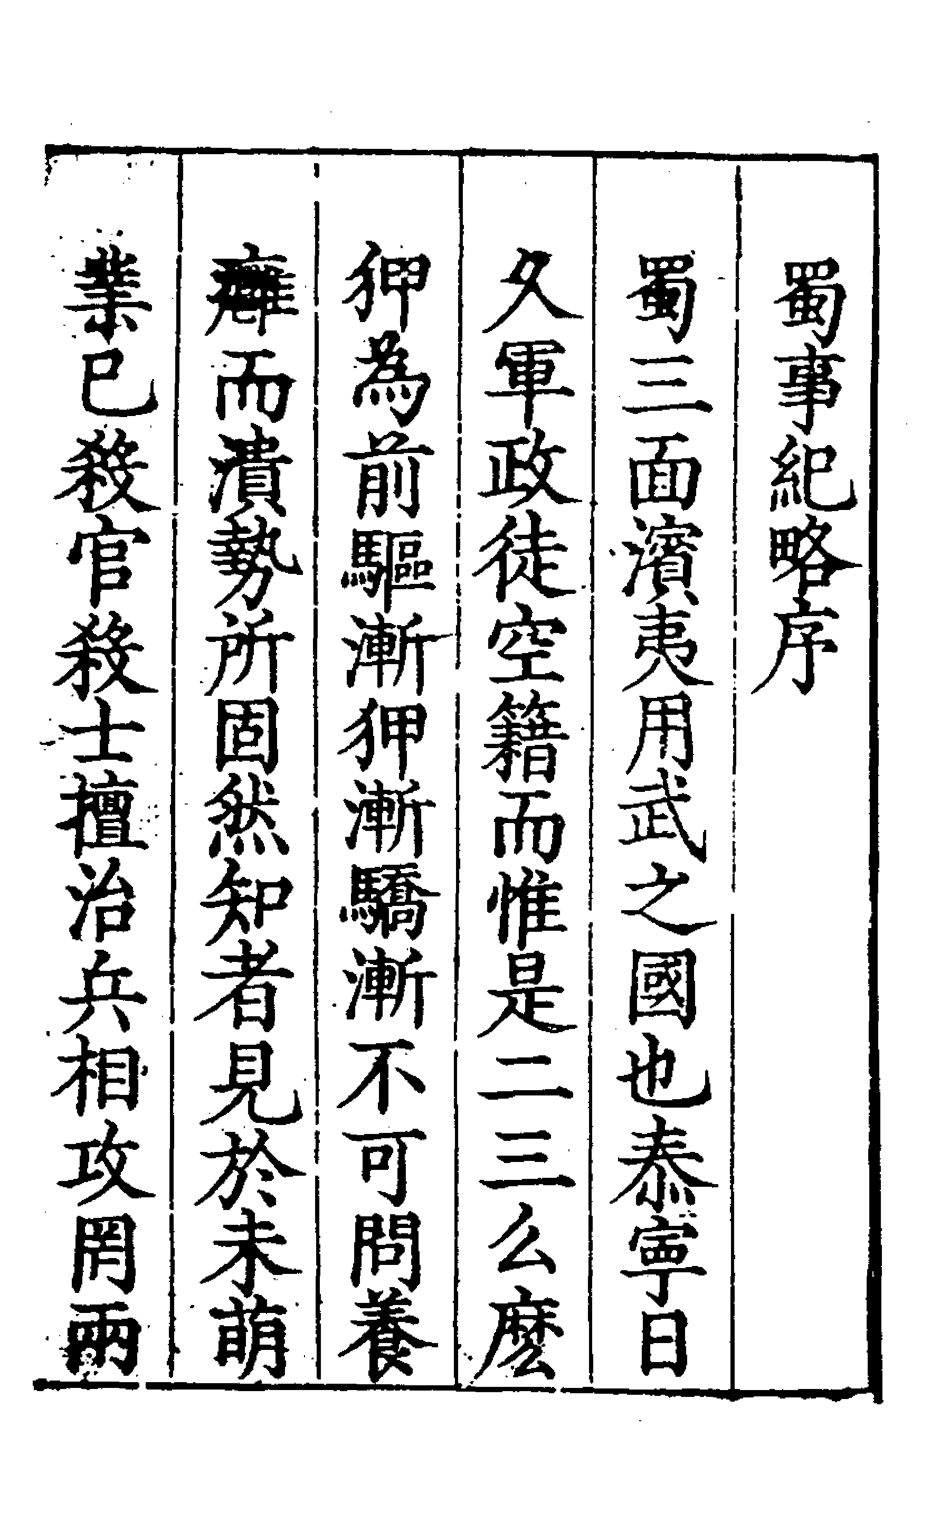 蜀事紀略序
蜀三面濱夷用武之國也泰寧日
久軍政徒空籍而惟是二三么麽
狎為前驅漸狎漸驕漸不可問養
癰而潰勢所固然知者見於未萌
業已殺官殺士擅治兵相攻罔兩